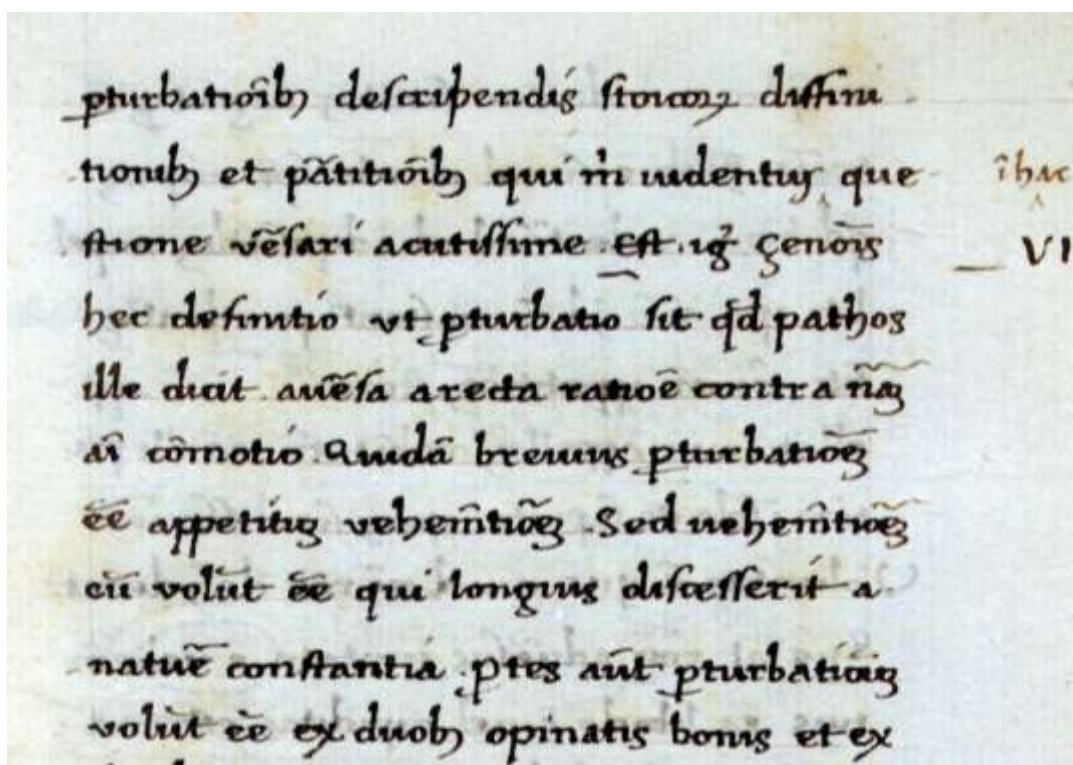 ꝑturbatiōibꝫ describendis stoicoꝝ diffini
tionibꝫ et ꝑtitiōibꝫ qui m̄ uidentur que
īhac
stione vēsari acutissime. Est igʳ zenoīs
VI
hec definitio vt ꝑturbatio sit qd̄ pathos
ille dicit auēsa a recta ratiōe contra nāꝫ
aī cōmotio. Quidā breuius ꝑturbatiōeꝫ
eē appetituꝫ vehemētiorē. Sed uehemētiorē
eū volūt eē qui longius discesserit a
natuē constantia. ꝑtes aūt ꝑturbationuꝫ
volūt eē ex duobꝫ opinatis bonis et ex